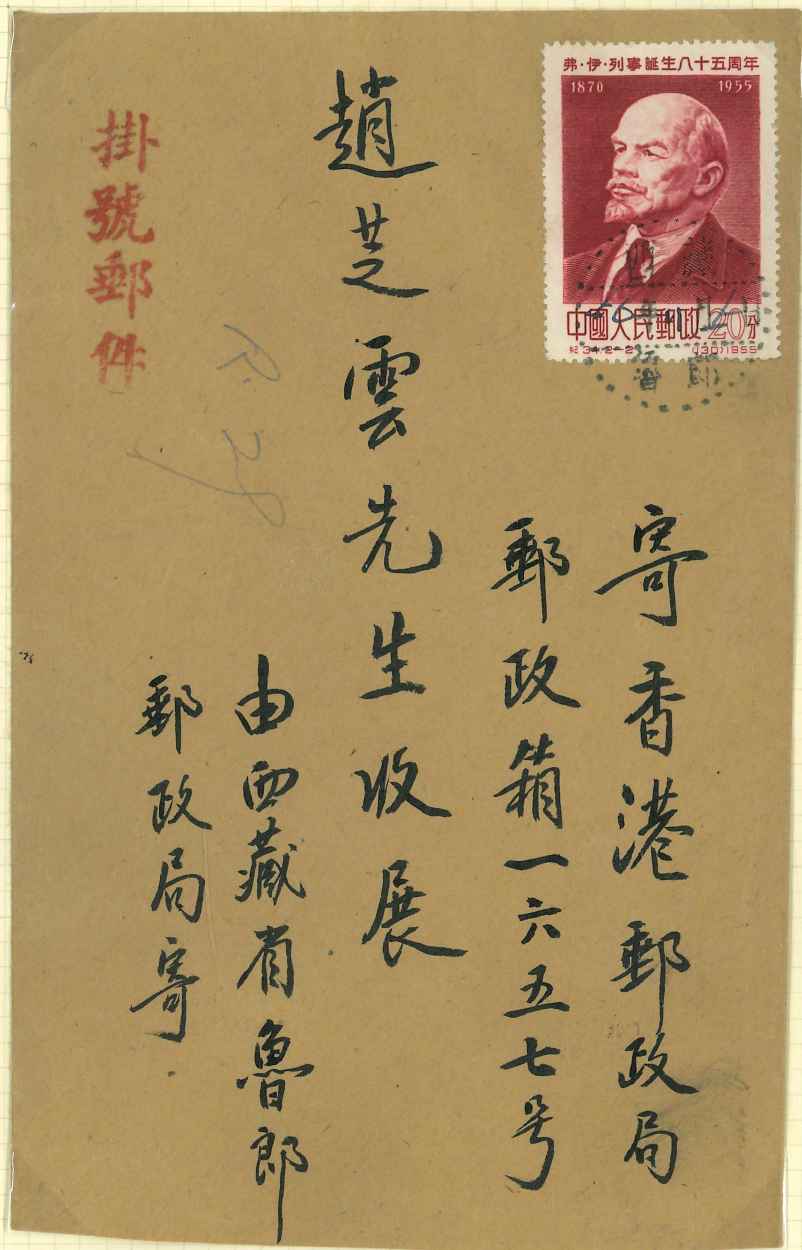 弗·伊·列寧誕生八十五周年
1870 1955
中國人民郵政 20分
紀34.2-2 (130)1955
西藏
寄香港郵政局
郵政箱一六五七号
趙芝雲先生收展
由西藏省魯郎
郵政局寄
掛號郵件